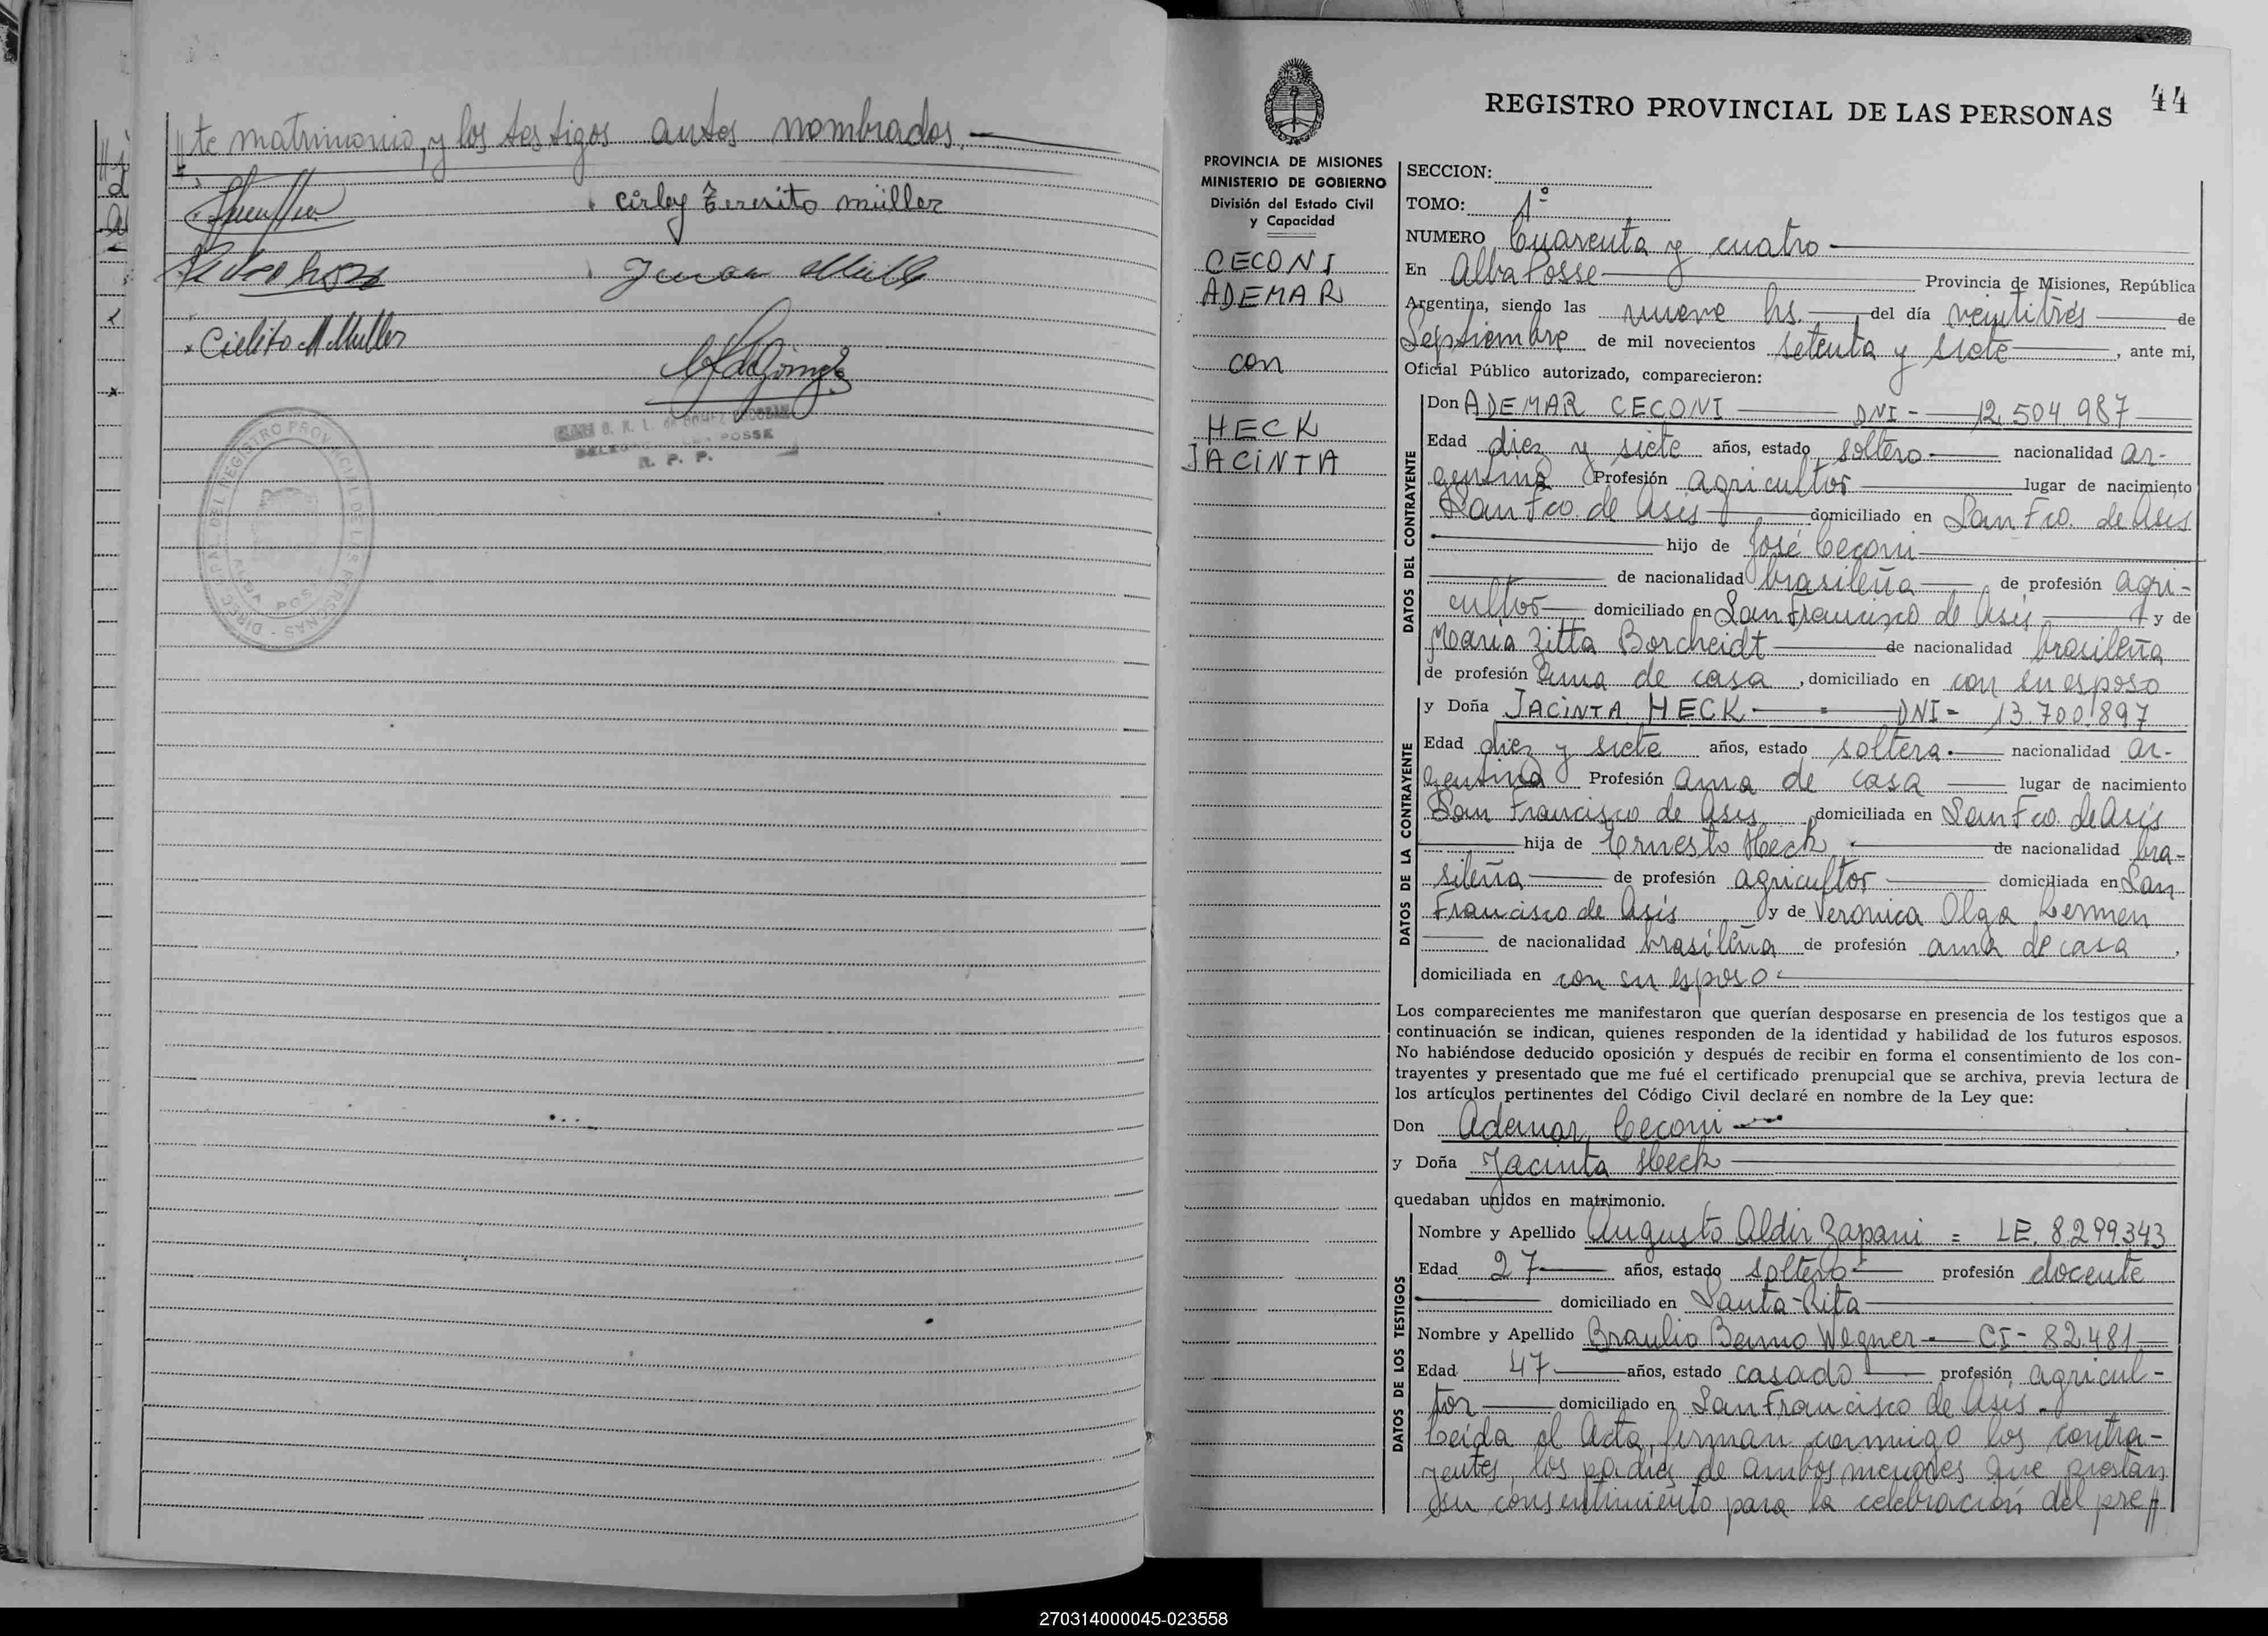 //te matrimonio, y los testigos antes nombrados.
Cirley Teresita müller
Cielito M Muller
DIREC. GRAL. DEL REGISTRO PROVINCIAL DE LAS PERSONAS
ALBA POSSE
R. P. P.
44
REGISTRO PROVINCIAL DE LAS PERSONAS
PROVINCIA DE MISIONES
MINISTERIO DE GOBIERNO
División del Estado Civil
y Capacidad
CECONI
ADEMAR
con
HECK
JACINTA
SECCION:
TOMO: 1º
NUMERO Cuarenta y cuatro
En Alba Posse Provincia de Misiones, República
Argentina, siendo las nueve hs. del día veintitrés de
Septiembre de mil novecientos setenta y siete, ante mi,
Oficial Público autorizado, comparecieron:
DATOS DEL CONTRAYENTE
Don ADEMAR CECONI DNI - 12.504.987
Edad diez y siete años, estado soltero nacionalidad ar-
gentina Profesión agricultor lugar de nacimiento
San Fco. de Asis domiciliado en San Fco. de Asis
hijo de José Ceconi
de nacionalidad brasileña de profesión agri-
cultor domiciliado en San Francisco de Asis y de
Maria Zitta Borcheidt de nacionalidad brasileña
de profesión ama de casa, domiciliado en con su esposo
DATOS DE LA CONTRAYENTE
y Doña JACINTA HECK DNI - 13.700.897
Edad diez y siete años, estado soltera. nacionalidad ar-
gentina Profesión ama de casa lugar de nacimiento
San Francisco de Asis domiciliada en San Fco. de Asis
hija de Ernesto Heck de nacionalidad bra-
sileña de profesión agricultor domiciliada en San
Francisco de Asis y de Veronica Olga Lermen
de nacionalidad brasileña de profesión ama de casa,
domiciliada en con su esposo
Los comparecientes me manifestaron que querían desposarse en presencia de los testigos que a
continuación se indican, quienes responden de la identidad y habilidad de los futuros esposos.
No habiéndose deducido oposición y después de recibir en forma el consentimiento de los con-
trayentes y presentado que me fué el certificado prenupcial que se archiva, previa lectura de
los artículos pertinentes del Código Civil declaré en nombre de la Ley que:
Don Ademar Ceconi
y Doña Jacinta Heck
quedaban unidos en matrimonio.
DATOS DE LOS TESTIGOS
Nombre y Apellido Augusto Aldir Zapani = LE. 8.299.343
Edad 27 años, estado soltero profesión docente
domiciliado en Santa Rita
Nombre y Apellido Braulio Benno Wegner - CI - 82.481
Edad 47 años, estado casado profesión agricul-
tor domiciliado en San Francisco de Asis.
Leída el Acta, firman conmigo los contra-
yentes, los padres de ambos menores que prestan
su consentimiento para la celebración del pre//
270314000045-023558